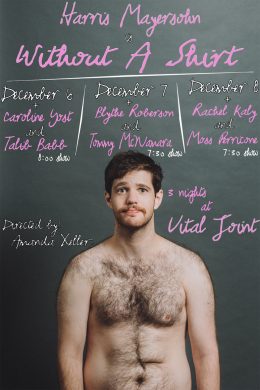 Harris Mayersohn
is
Without A Shirt
December 6
+
Caroline Yost
and
Talib Babb
8:00 show
December 7
+
Blythe Roberson
and
Tommy McNamara
7:30 show
December 8
+
Rachel Kaly
and
Moss Perricone
7:30 show
3 nights
at
Vital Joint
Directed by
Amanda Xeller